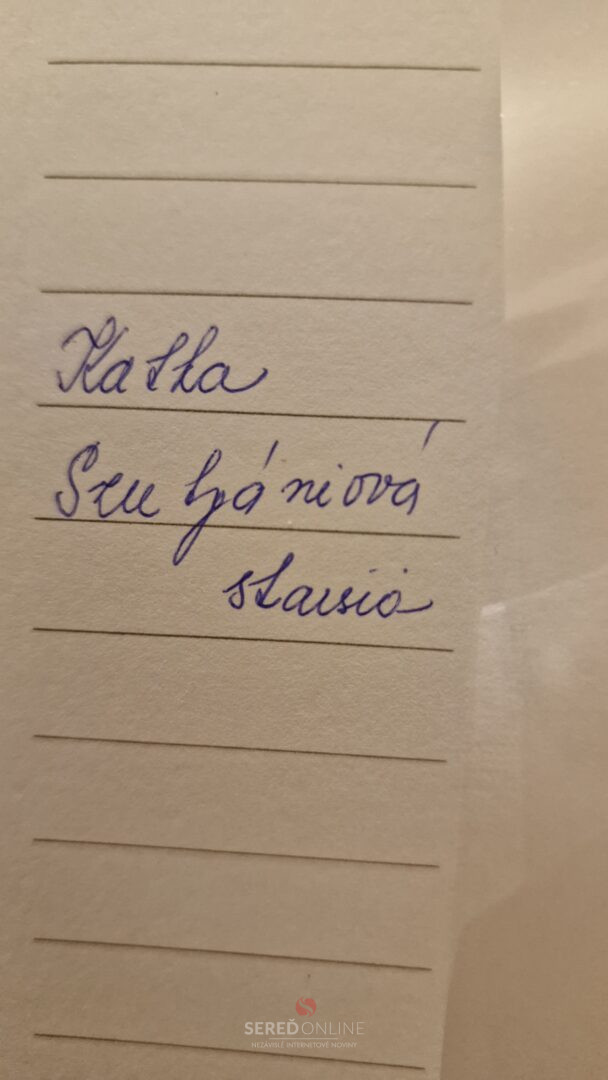 Katka
staršia
SEREĎONLINE
NEZÁVISLÉ INTERNETOVÉ NOVINY